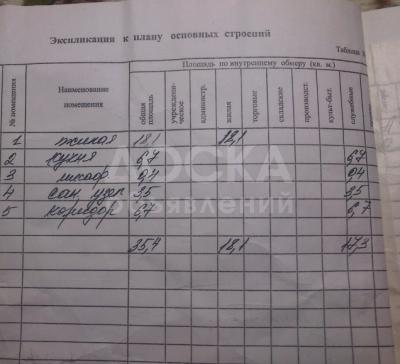 Экспликация к плану основных строений
Таблица
№ помещения
Наименование помещения
Площадь по внутреннему обмеру (кв. м.)
общая площадь
учрежденческое
администр.
жилая
торговые
складские
производст.
культ-быт.
служебные
1 жилая 18,1 18,1
2 кухня 6,7 6,7
3 шкаф 0,4 0,4
4 сан узел 3,5 3,5
5 коридор 6,7 6,7
35,4 18,1 17,3
ДОСКА
объявлений